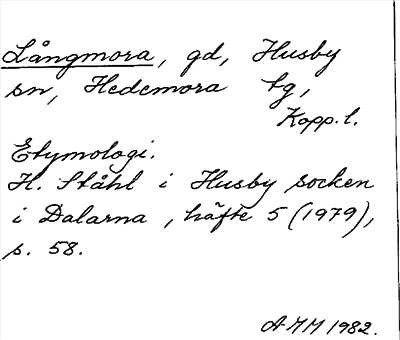 Långmora, gd, Husby
sn, Hedemora tg,
Kopp. l.
Etymologi.
H. Ståhl i Husby socken
i Dalarna, häfte 5 (1979),
s. 58.
AMM 1982.